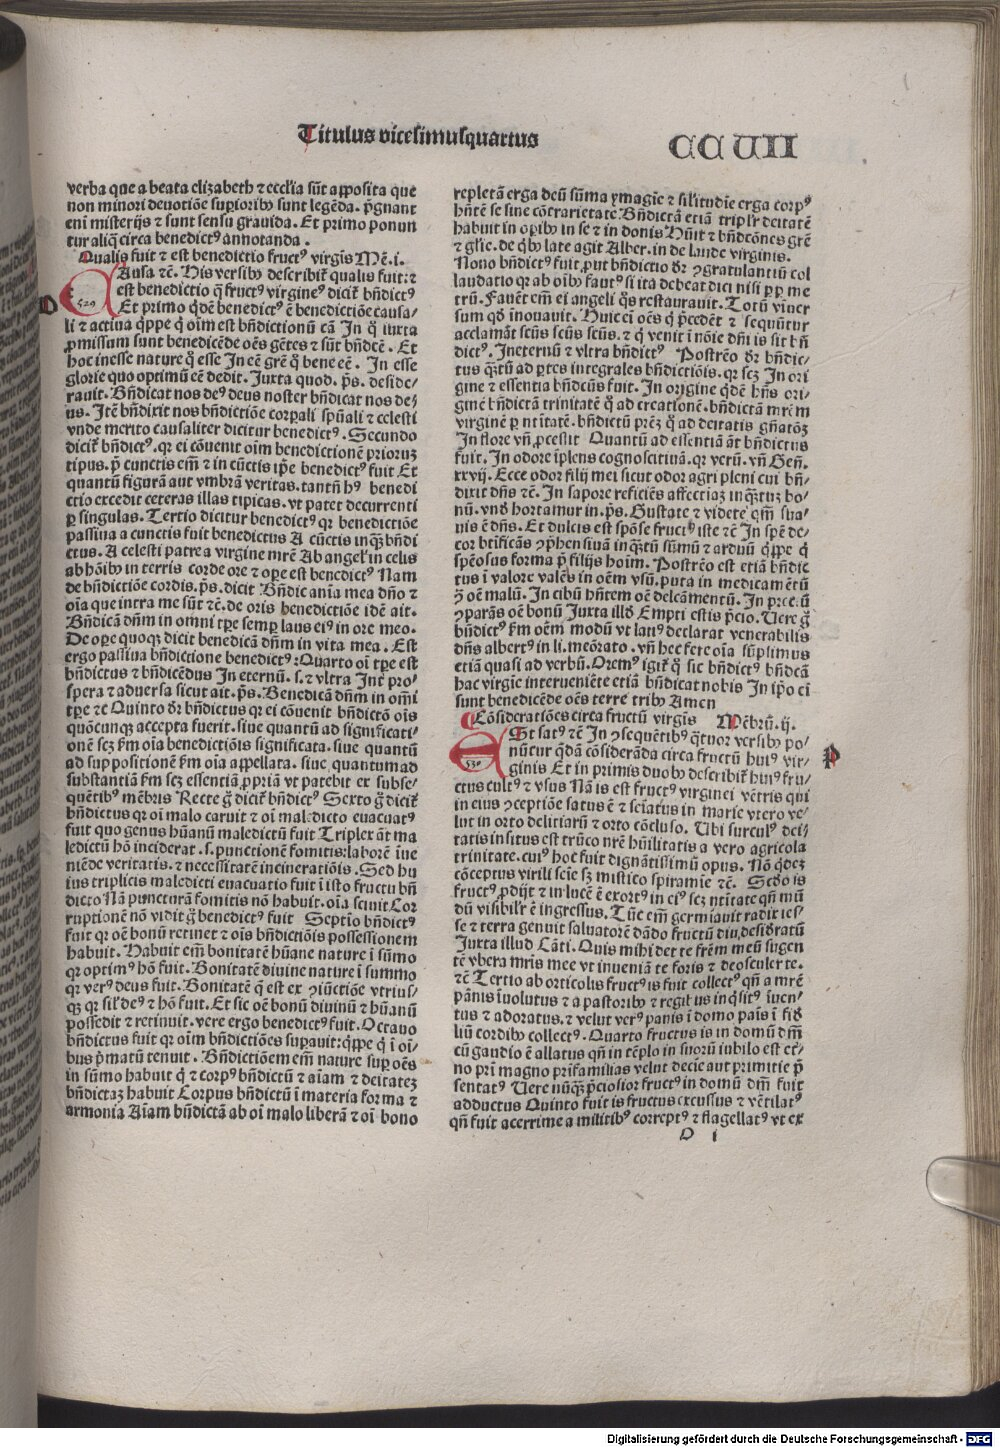 Titulus vicesimusquartus
CCVII
verba que a beata elizabeth ⁊ ecclīa sūt apposita que
non minori deuotiōe superioribꝰ sunt legēda. p̄gnant
eni misterijs ⁊ sunt sensu grauida. Et primo ponun
tur aliq̄ circa benedictꝰ annotanda.
Qualis fuit ⁊ est benedictio fructꝰ virgis Mē.i.
Ausa ⁊c̄. His versibꝰ describit̃ qualis fuit: ⁊
529
est benedictio q̄ fructꝰ virgineꝰ dicit̃ bn̄dictꝰ
D
Et primo q̄dē benedictꝰ ē benedictiōe causa/
li ⁊ actiua q̄ppe q̄ oīm est bn̄dictionū cā In q̄ iuxta
ꝓmissum sunt benedicēde oēs gētes ⁊ sūt bn̄dcē. Et
hoc inesse nature q̄ esse In eē grē q̄ bene eē. In esse
glorie quo optimū eē dedit. Iuxta quod. ps̄. deside-
rauit. Bn̄dicat nos deꝰ deus noster bn̄dicat nos de/
us. Itē bn̄dixit nos bn̄dictiōe corpali spūali ⁊ celesti
vnde merito causaliter dicitur benedictꝰ. Secundo
dicit̃ bn̄dictꝰ. qr ei cōuenit oīm benedictionē prioruꝫ
tipus. p̄ cunctis em̄ ⁊ in cūctis ip̄e benedictꝰ fuit Et
quantū figurā aut vmbrā veritas. tantū hꝰ benedi
ctio excedit ceteras illas tipicas. vt patet decurrenti
ꝑ singulas. Tertio dicitur benedictꝰ qr benedictiōe
passiua a cunctis fuit benedictus A cūctis inq̄ꝫ bn̄di
ctus. A celesti patre a virgine mrē Ab angel̓ in celis
ab hoībꝰ in terris corde ore ⁊ oꝑe est benedictꝰ Nam
de bn̄dictiōe cordis. ps̄. dicit Bn̄dic anīa mea dn̄o ⁊
oīa que intra me sūt ⁊c̄. de oris benedictiōe idē ait.
Bn̄dicā dn̄m in omni tꝑe semꝑ laus eiꝰ in ore meo.
De oꝑe quoqꝫ dicit benedicā dn̄m in vita mea. Est
ergo passiua bn̄dictione benedictꝰ: Quarto oī tꝑe est
bn̄dictus ⁊ bn̄dicēdus In eternū. s. ⁊ vltra Int̃ pro/
spera ⁊ aduersa sicut ait. ps̄. Benedicā dn̄m in om̄i
tꝑe ⁊c̄ Quinto dr̄ bn̄dictus qr ei cōuenit bn̄dictō oīs
quōcunqꝫ accepta fuerit. siue quantū ad significati-
onē scꝫ ẜm oīa benedictiōis significata. siue quantū
ad suppositionē ẜm oīa appellata. siue quantum ad
substantiā ẜm scꝫ essentiā ꝓpriā vt patebit ex subse/
quētibꝰ mēbris Recte g̃ dicit̃ bn̄dictꝰ Sexto g̃ dicit̃
bn̄dictus qr oī malo caruit ⁊ oī maledicto euacuatꝰ
fuit quo genus hūanū maledictū fuit Triplex āt ma
ledictū hō inciderat. s. punctionē fomitis: laborē īue
niēde veritatis. ⁊ necessitatē incineratiōis. Sed hu
ius triplicis maledicti euacuatio fuit ī isto fructu bn̄
dicto Nā puncturā fomitis nō habuit. oīa sciuit Cor
ruptionē nō vidit g̃ benedictꝰ fuit Septīo bn̄dictꝰ
fuit qr oē bonū retinet ⁊ oīs bn̄dictiōis possessionem
habuit. Habuit em̄ bonitatē hūane nature ī sūmo
qr optimꝰ hō fuit. Bonitatē diuine nature ī summo
qr verꝰ deus fuit. Bonitatē q̄ est ex ꝯiūctiōe vtrius/
qꝫ qr sil̓ deꝰ ⁊ hō fuit. Et sic oē bonū diuinū ⁊ hūanū
possedit ⁊ retinuit. vere ergo benedictꝰ fuit. Octauo
bn̄dictus fuit qr oīm bn̄dictiōes suꝑauit: q̄ppe q̄ ī oī/
bus p̄matū tenuit. Bn̄dictiōem em̄ nature suꝑ oēs
in sūmo habuit q̄ ⁊ corpꝰ bn̄dictū ⁊ aīam ⁊ deitateꝫ
bn̄dictaꝫ habuit Corpus bn̄dictū ī materia forma ⁊
armonia Aīam bn̄dictā ab oī malo liberā ⁊ oī bono
repletā erga deū sūma ymagīe ⁊ silitudīe erga corpꝰ
hn̄tē se sine cōtrarietate Bn̄dictā etiā triplr̄ deitatē
habuit in oꝑibꝰ in se ⁊ in donis Hūit ⁊ bn̄dcōnes grē
⁊ glīe. de q̄bꝰ late agit Alber. in de laude virginis.
Nono bn̄dictꝰ fuit ꝓut bn̄dictio dr̄ ꝯgratulantiū col
laudatio qr ab oībꝰ fautꝰ si ita debeat dici nisi ꝑꝑ me
trū. Fauēt em̄ ei angeli q̄s restaurauit. Totū vniuer
sum qd̄ īnouauit. Huic ei oēs q̄ p̄cedēt ⁊ seq̄untur
acclamāt scūs scūs scūs. ⁊ q̄ venit ī noīe dn̄i is sit bn̄
dictꝰ. Ineternū ⁊ vltra bn̄dictꝰ Postrēo dr̄ bn̄dic-
tus q̄stū ad ꝑtes integrales bn̄dictiōis. qr scꝫ In ori
gine ⁊ essentia bn̄dcūs fuit. In origine q̄dē hn̄s ori-
ginē bn̄dictā trinitatē q̄ ad creationē. bn̄dictā mrēm
virginē ꝑ ntītatē. bn̄dictū prēꝫ q̄ ad deitatis gn̄atōꝫ
In flore vn̄ ꝓcessit Quantū ad essentiā āt bn̄dictus
fuit. In odore īplens cognoscitiuā. qr verū. vn̄ Gen̄.
xxvij. Ecce odor filij mei sicut odor agri pleni cui bn̄-
dixit dn̄s ⁊c̄. In sapore reficiēs affectiaꝫ inq̄ꝫtuꝫ bo-
nū. vnd̄ hortamur in. ps̄. Gustate ⁊ videte qm̄ sua/
uis ē dn̄s. Et dulcis est spōse fructꝰ iste ⁊c̄ In spē de-
cor btīficās ꝯp̄hensiuā inq̄ꝫtū sūmū ⁊ arduū q̄ppe q̄
spēosus forma p̄ filijs hoīm. Postrēo est etiā bn̄dic
tus ī valore valēs in oēm vsū. puta in medicamētū
ꝯ̄ oē malū. In cibū hn̄tem oē delcāmentū. In prec.ū
ꝯparās oē bonū Iuxta illd̄ Empti estis p̄cio. Uere g̃
bn̄dictꝰ ẜm oēm modū vt latiꝰ declarat venerabilis
dn̄s albertꝰ in li. meōrato. vn̄ hec fere oīa sūpsimus
etiā quasi ad verbū. Oremꝰ igit̃ q̄ sic bn̄dictꝰ bn̄dcā
hac virgīe interueniēte etiā bn̄dicat nobis In ip̄o ei
sunt benedicēde oēs terre tribꝰ Amen
Cōsideratiōes circa fructū virgis Mēbrū.ij.
St satꝰ ⁊c̄ In ꝯseq̄uētibꝰ q̄tuor versibꝰ po/
530
nūtur q̄dā cōsiderāda circa fructū huiꝰ vir/
P
ginis Et in primis duobꝰ describit̃ huiꝰ fru/
ctus cultꝰ ⁊ vsus Nā is est fructꝰ virginei vētris qui
in eius ꝯceptiōe satus ē ⁊ seiatus in marie vtero ve/
lut in orto delitiarū ⁊ orto cōcluso. Ubi surculꝰ dei/
tatis insitus est trūco nrē hūilitatis a vero agricola
trinitate. cuiꝰ hoc fuit dignātissimū opus. Nō q̄deꝫ
cōceptus virili seīe sꝫ mistico spiramie ⁊c̄. Scd̄o is
fructꝰ ꝓdijt ⁊ in lucē ē exortꝰ in eiꝰ scꝫ ntītate qn̄ mū
dū visibilr̄ ē ingressus. Tūc em̄ germiauit radix ies/
se ⁊ terra genuit saluatorē dādo fructū diu, desid̄ratū
Iuxta illud Cāti. Quis mihi det te fr̄em meū sugen
tē vbera mr̄is mee vt inueniā te foris ⁊ deosculer te.
⁊c̄ Tertio ab orticolis fructꝰ is fuit collectꝰ qn̄ a mrē
pānis īuolutus ⁊ a pastoribꝰ ⁊ regibus inq̄sitꝰ īuen/
tus ⁊ adoratus. ⁊ velut verꝰ panis ī domo pais ī fid̄
liū cordibꝰ collectꝰ. Quarto fructus is in domū dn̄i
cū gaudio ē allatus qn̄ in tēplo in suorū iubilo est et̃/
no prī magno prīfamilias velut decie aut primitie p̄
sentatꝰ Uere nūq̄ꝫ p̄ciosior fructꝰ in domū dn̄i fuit
adductus Quinto fuit is fructus excussus ⁊ vētilatꝰ
qn̄ fuit acerrime a militibꝰ correptꝰ ⁊ flagellatꝰ vt ex
D i
Digitalisierung gefördert durch die Deutsche Forschungsgemeinschaft - DFG